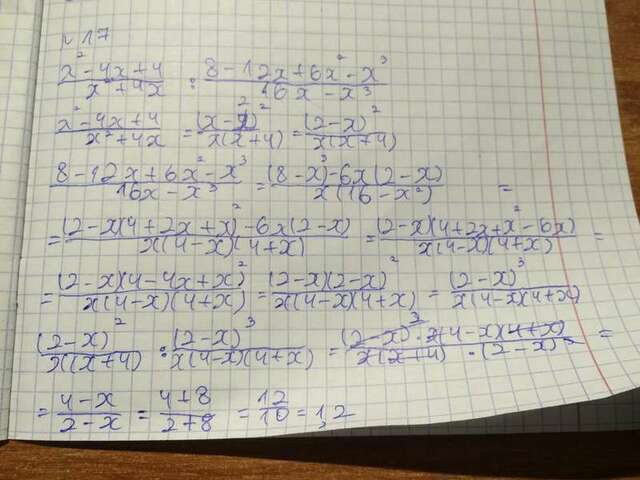 N 17
(x² - 4x + 4)/(x² + 4x) : (8 - 12x + 6x² - x³)/(16x - x³)
(x² - 4x + 4)/(x² + 4x) = (x - 2)²/x(x + 4) = (2 - x)²/x(x + 4)
(8 - 12x + 6x² - x³)/(16x - x³) = (8 - x³) - 6x(2 - x)/x(16 - x²) =
= (2 - x)(4 + 2x + x²) - 6x(2 - x)/x(4 - x)(4 + x) = (2 - x)(4 + 2x + x² - 6x)/x(4 - x)(4 + x) =
= (2 - x)(4 - 4x + x²)/x(4 - x)(4 + x) = (2 - x)(2 - x)²/x(4 - x)(4 + x) = (2 - x)³/x(4 - x)(4 + x)
(2 - x)²/x(x + 4) : (2 - x)³/x(4 - x)(4 + x) = (2 - x)² · x(4 - x)(4 + x)/x(x + 4) · (2 - x)³ =
= (4 - x)/(2 - x) = (4 + 8)/(2 + 8) = 12/10 = 1,2